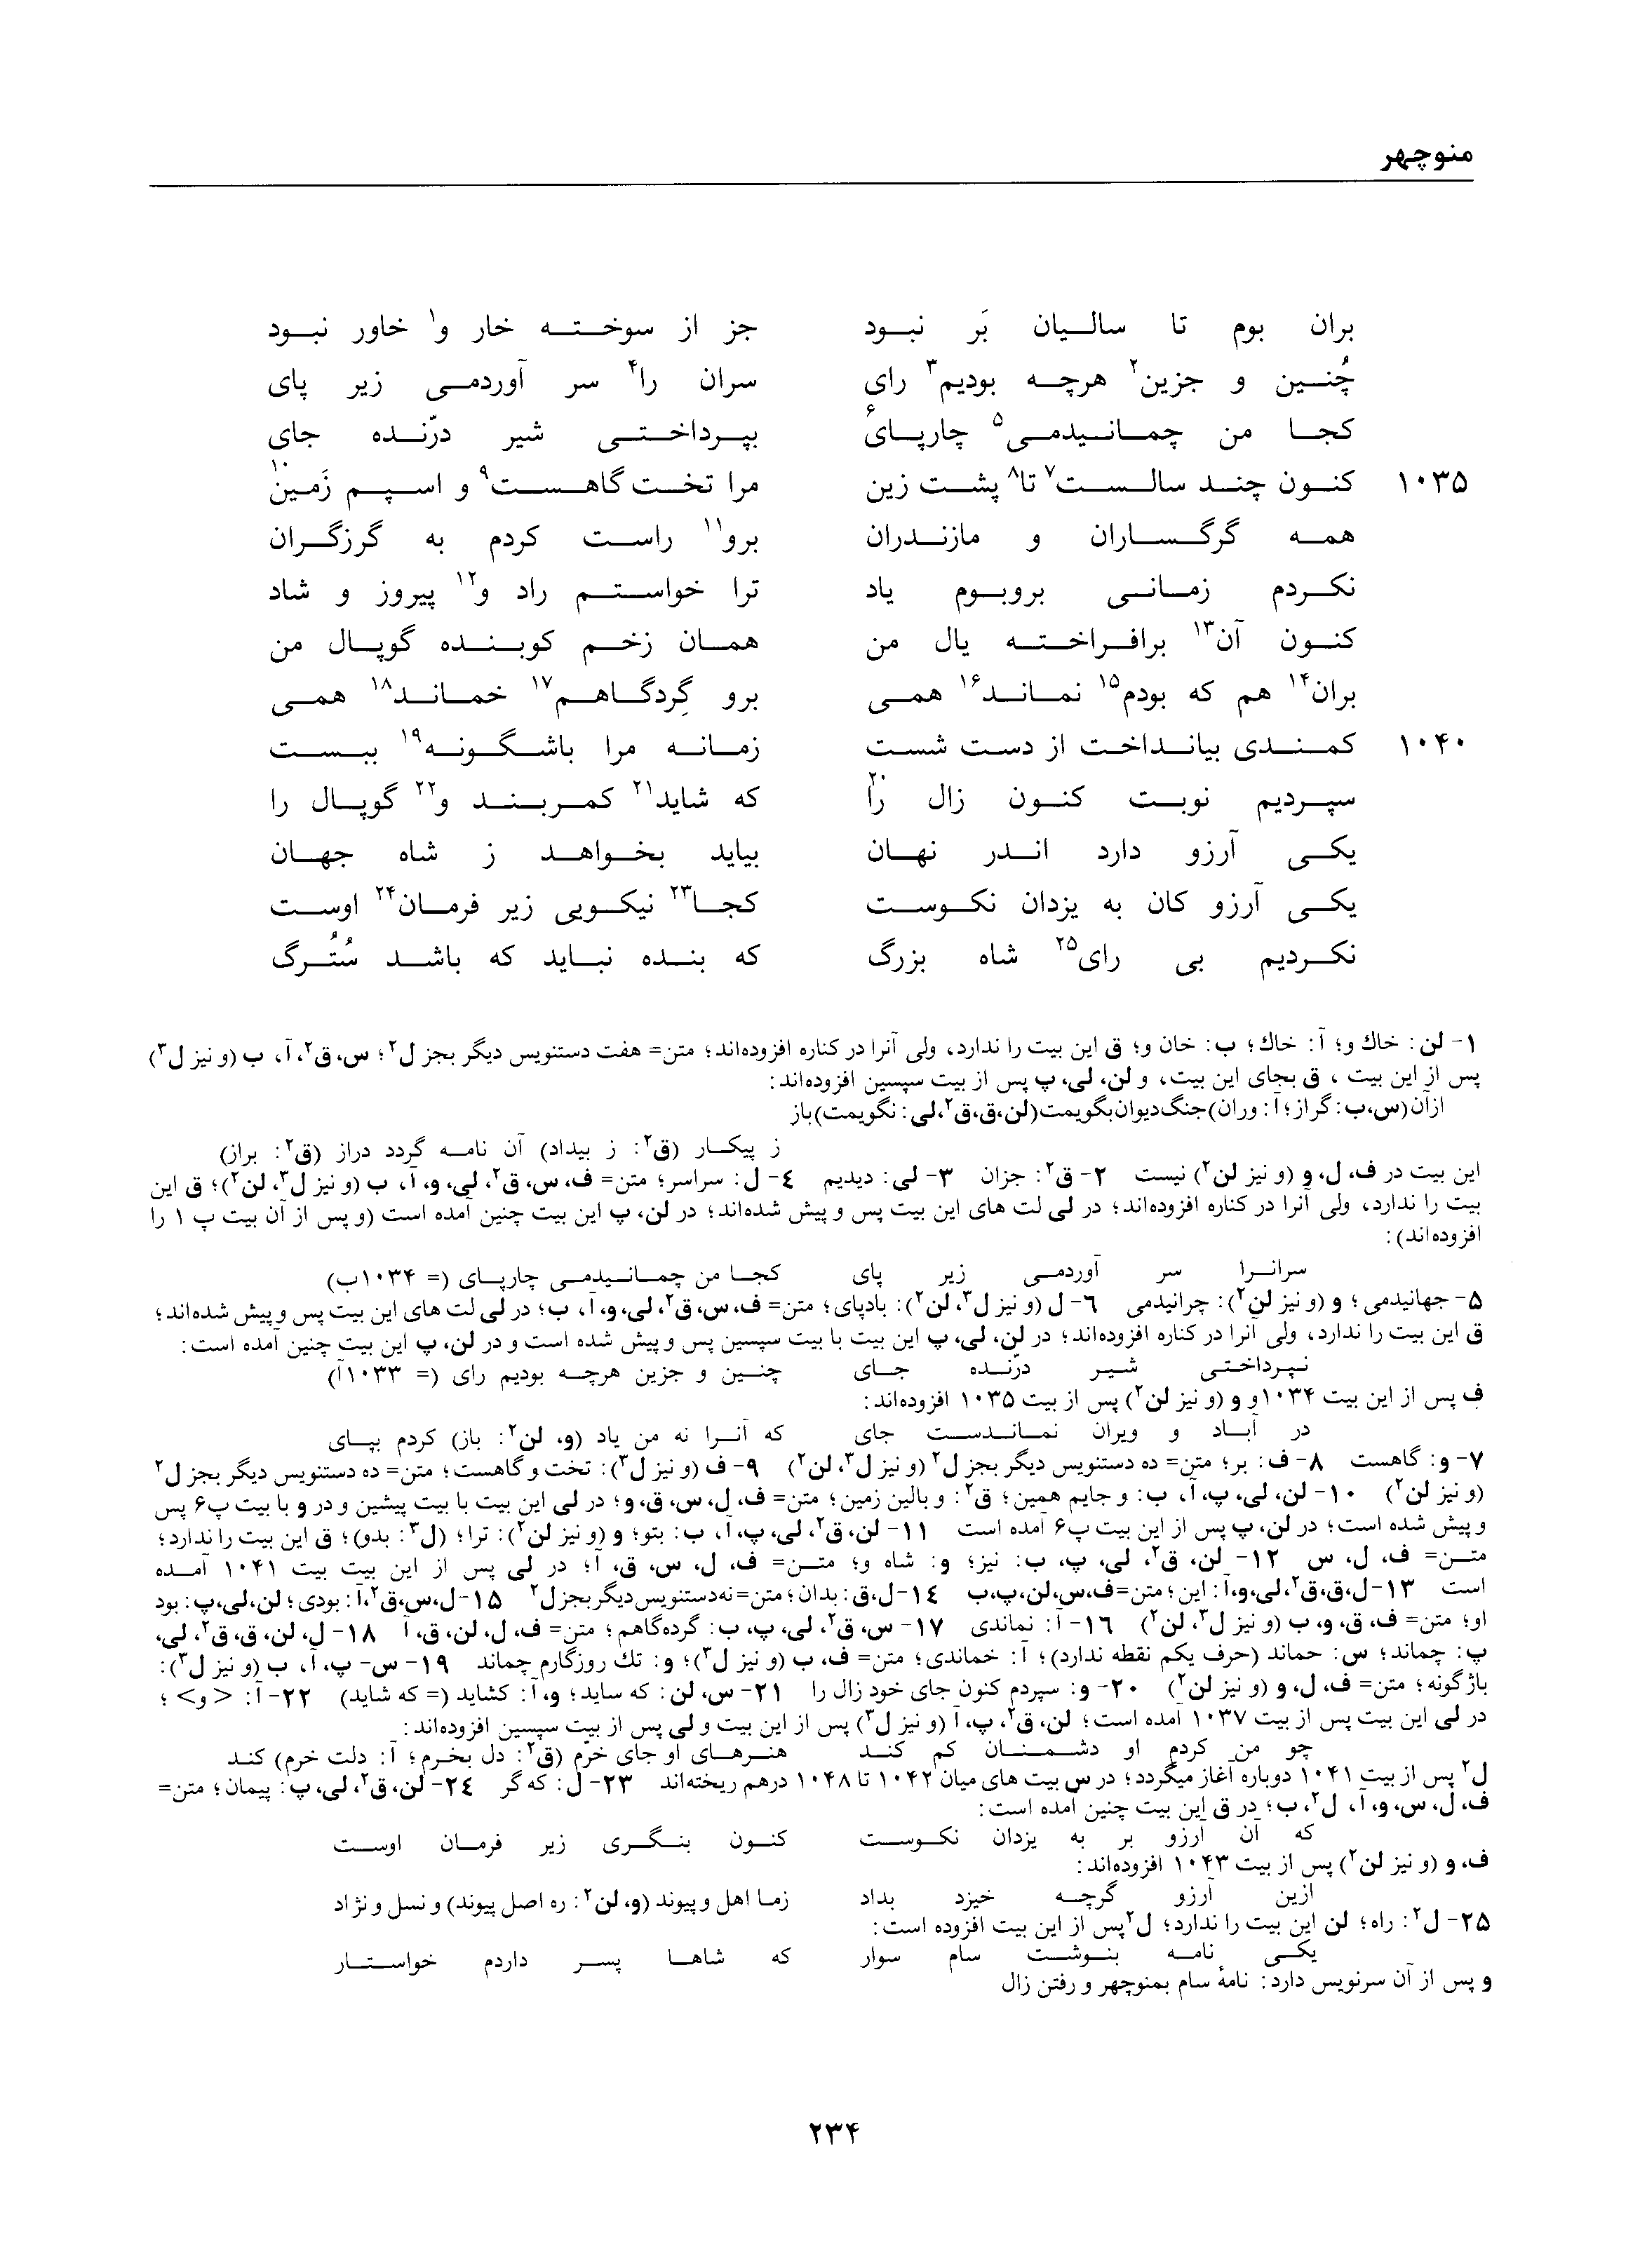 منوچهر
بران بوم تا سالیان بَر نبود جز از سوخته خار و۱ خاور نبود
چُنین و جزین۲ هرچه بودیم۳ رای سران را۴ سر آوردمی زیر پای
کجا من چمانیدمی۵ چارپای۶ بپرداختی شیر درّنده جای
۱۰۳۵ کنون چند سالست۷ تا۸ پشت زین مرا تخت گاهست۹ و اسپم زَمین۱۰
همه گرگساران و مازندران برو۱۱ راست کردم به گرزگران
نکردم زمانی بروبوم یاد ترا خواستم راد و۱۲ پیروز و شاد
کنون آن۱۳ برافراخته یال من همان زخم کوبنده گوپال من
بران۱۴ هم که بودم۱۵ نماند۱۶ همی برو گِردگاهم۱۷ خماند۱۸ همی
۱۰۴۰ کمندی بیانداخت از دست شست زمانه مرا باشگونه۱۹ ببست
سپردیم نوبت کنون زال را۲۰ که شاید۲۱ کمربند و۲۲ گوپال را
یکی آرزو دارد اندر نهان بیاید بخواهد ز شاه جهان
یکی آرزو کان به یزدان نکوست کجا۲۳ نیکویی زیر فرمان۲۴ اوست
نکردیم بی رای۲۵ شاه بزرگ که بنده نباید که باشد سُتُرگ
۱- لن: خاك و؛ آ: خاك؛ ب: خان و؛ ق این بیت را ندارد، ولی آنرا در کناره افزوده‌اند؛ متن= هفت دستنویس دیگر بجز ل۲؛ س، ق۲، آ، ب (و نیز ل۳)
پس از این بیت ، ق بجای این بیت، و لن، لی، پ پس از بیت سپسین افزوده‌اند:
ازآن(س،ب: گراز؛ آ: وران)جنگ‌دیوان‌بگویمت(لن،ق،ق۲،لی: نگویمت)باز
ز پیکار (ق۲: ز بیداد) آن نامه گردد دراز (ق۲: براز)
این بیت در ف، ل، و (و نیز لن۲) نیست ۲- ق۲: جزان ۳- لی: دیدیم ٤- ل: سراسر؛ متن= ف، س، ق۲، لی، و، آ، ب (و نیز ل۳، لن۲)؛ ق این
بیت را ندارد، ولی آنرا در کناره افزوده‌اند؛ در لی لت های این بیت پس و پیش شده‌اند؛ در لن، پ این بیت چنین آمده است (و پس از آن بیت پ ۱ را
افزوده‌اند):
سرانرا سر آوردمی زیر پای کجا من چمانیدمی چارپای (= ۱۰۳۴ب)
۵- جهانیدمی؛ و (و نیز لن۲): چرانیدمی ٦- ل (و نیز ل۳، لن۲): بادپای؛ متن= ف، س، ق۲، لی، و، آ، ب؛ در لی لت های این بیت پس و پیش شده‌اند؛
ق این بیت را ندارد، ولی آنرا در کناره افزوده‌اند؛ در لن، لی، پ این بیت با بیت سپسین پس و پیش شده است و در لن، پ این بیت چنین آمده است:
نپرداختی شیر درّنده جای چنین و جزین هرچه بودیم رای (= ۱۰۳۳آ)
ف پس از این بیت ۱۰۳۴و و (و نیز لن۲) پس از بیت ۱۰۳۵ افزوده‌اند:
در آباد و ویران نماندست جای که آنرا نه من یاد (و، لن۲: باز) کردم بپای
۷- و: گاهست ۸- ف: بر؛ متن= ده دستنویس دیگر بجز ل۲ (و نیز ل۳، لن۲) ۹- ف (و نیز ل۳): تخت و گاهست؛ متن= ده دستنویس دیگر بجز ل۲
(و نیز لن۲) ۱۰- لن، لی، پ، آ، ب: و جایم همین؛ ق۲: و بالین زمین؛ متن= ف، ل، س، ق، و؛ در لی این بیت با بیت پیشین و در و با بیت پ۶ پس
و پیش شده است؛ در لن، پ پس از این بیت پ۶ آمده است ۱۱- لن، ق۲، لی، پ، آ، ب: بتو؛ و (و نیز لن۲): ترا؛ (ل۳: بدو)؛ ق این بیت را ندارد؛
متن= ف، ل، س ۱۲- لن، ق۲، لی، پ، ب: نیز؛ و: شاه و؛ متن= ف، ل، س، ق، آ؛ در لی پس از این بیت بیت ۱۰۴۱ آمده
است ۱۳-ل،ق،ق۲،لی،و،آ: این؛ متن=ف،س،لن،پ،ب ۱٤-ل،ق: بدان؛متن=نه‌دستنویس‌دیگربجزل۲ ۱۵-ل،س،ق۲،آ: بودی؛لن،لی،پ: بود
او؛ متن= ف، ق، و، ب (و نیز ل۳، لن۲) ۱٦- آ: نماندی ۱۷- س، ق۲، لی، پ، ب: گرده‌گاهم؛ متن= ف، ل، لن، ق، آ ۱۸- ل، لن، ق، ق۲، لی،
پ: چماند؛ س: حماند (حرف یکم نقطه ندارد)؛ آ: خماندی؛ متن= ف، ب (و نیز ل۳)؛ و: تك روزگارم چماند ۱۹- س- پ، آ، ب (و نیز ل۳):
باژگونه؛ متن= ف، ل، و (و نیز لن۲) ۲۰- و: سپردم کنون جای خود زال را ۲۱- س، لن: که ساید؛ و، آ: کشاید (= که شاید) ۲۲- آ: <و> ؛
در لی این بیت پس از بیت ۱۰۳۷ آمده است؛ لن، ق۲، پ، آ (و نیز ل۳) پس از این بیت و لی پس از بیت سپسین افزوده‌اند:
چو من کردم او دشمنان کم کند هنرهای او جای خرّم (ق۲: دل بخرم؛ آ: دلت خرم) کند
ل۲ پس از بیت ۱۰۴۱ دوباره آغاز میگردد؛ در س بیت های میان ۱۰۴۲ تا ۱۰۴۸ درهم ریخته‌اند ۲۳- ل: که گر ۲٤- لن، ق۲، لی، پ: پیمان؛ متن=
ف، ل، س، و، آ، ل۲، ب؛ در ق این بیت چنین آمده است:
که آن آرزو بر به یزدان نکوست کنون بنگری زیر فرمان اوست
ف، و (و نیز لن۲) پس از بیت ۱۰۴۳ افزوده‌اند:
ازین آرزو گرچه خیزد بداد زما اهل و پیوند (و، لن۲: ره اصل پیوند) و نسل و نژاد
۲۵- ل۲: راه؛ لن این بیت را ندارد؛ ل۲پس از این بیت افزوده است:
یکی نامه بنوشت سام سوار که شاها پسر داردم خواستار
و پس از آن سرنویس دارد: نامهٔ سام بمنوچهر و رفتن زال
۲۳۴